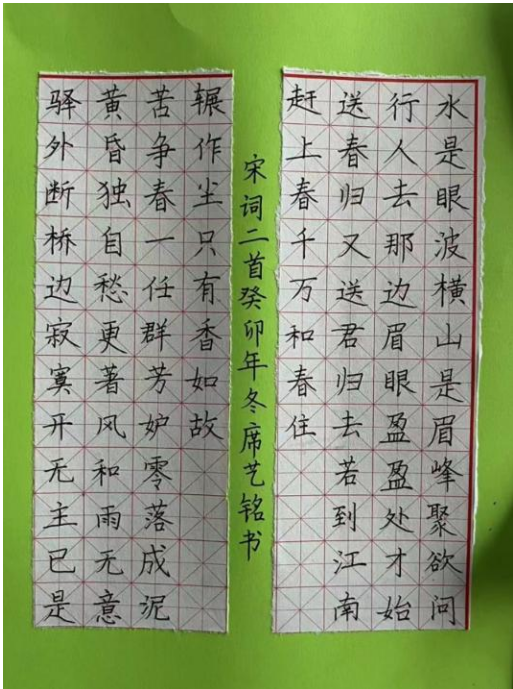 水是眼波横山是眉峰聚欲问
行人去那边眉眼盈盈处才始
送春归又送君归去若到江南
赶上春千万和春住
驿外断桥边寂寞开无主已是
黄昏独自愁更著风和雨无意
苦争春一任群芳妒零落成泥
辗作尘只有香如故
宋词二首癸卯年冬席艺铭书